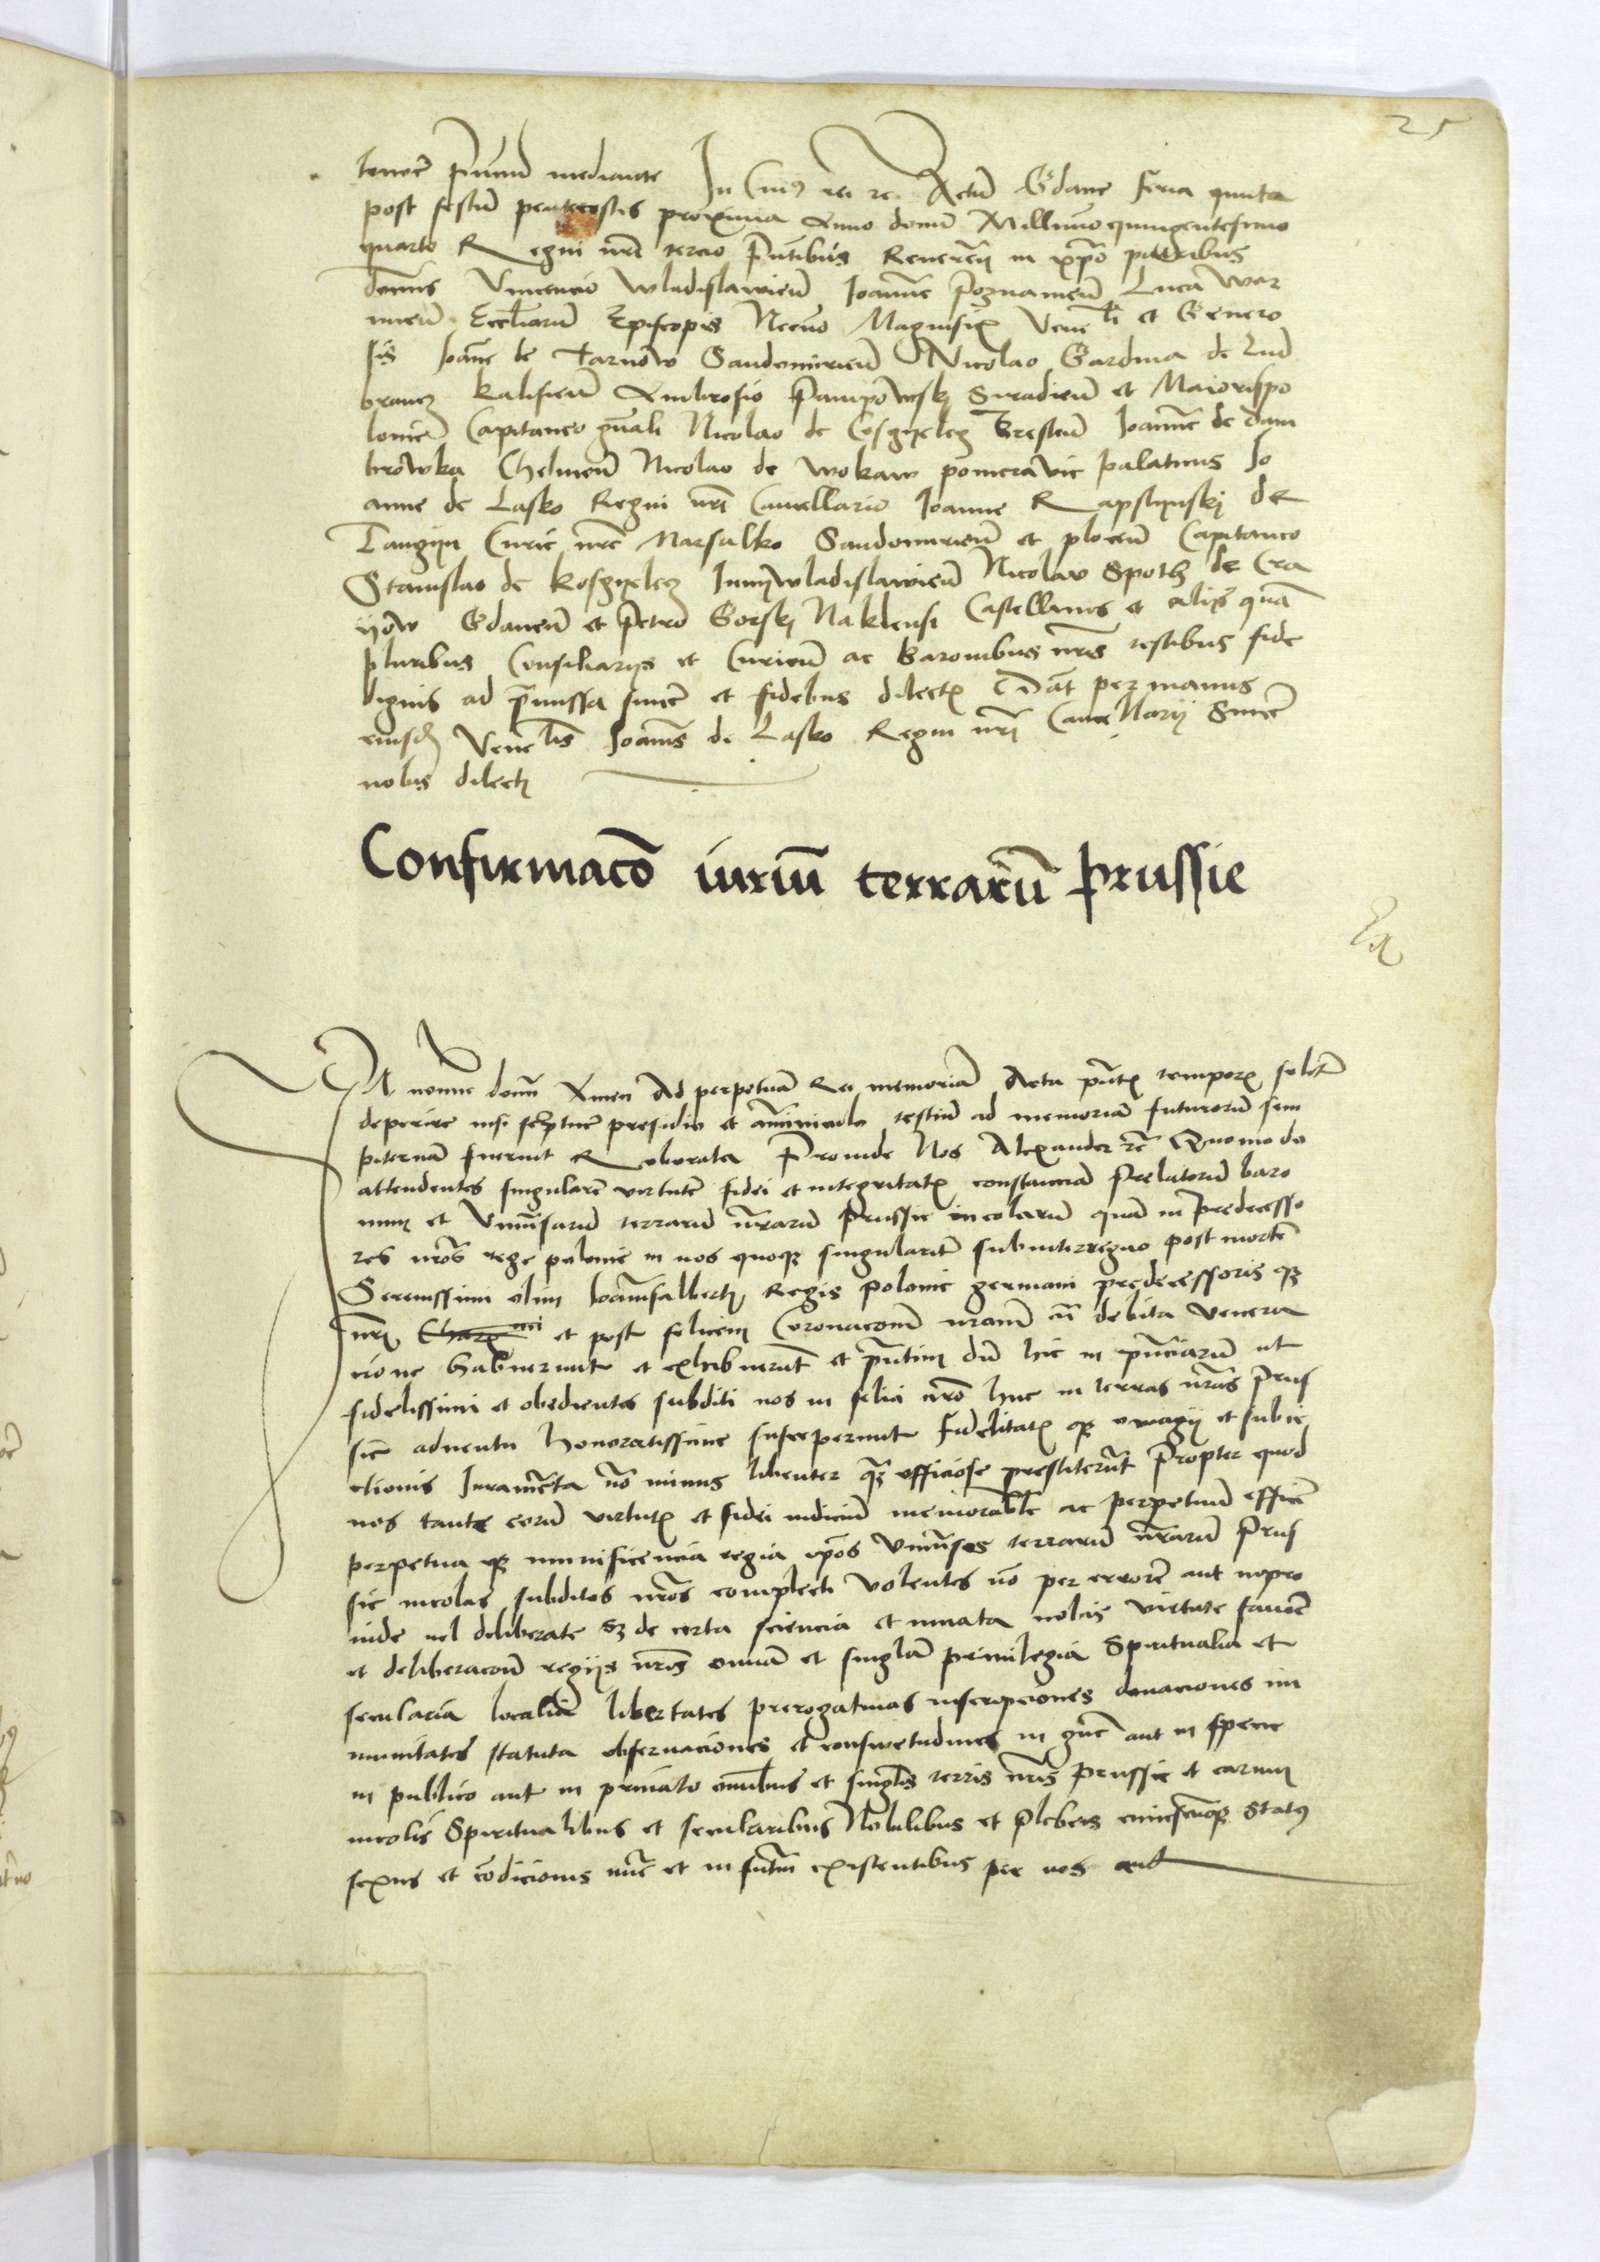 25
tenore presentium mediante In Cuius rei rc. Actum Gdanc feria quinta
post festum pentecostes proxima Anno domini Millimo quingentesimo
quarto Regni nrī tercio Pntībus Reverendis in xpō patribus
domīs Vincencio Wladislawieñ Joanne Poznanieñ Luca War
mieñ Eccliarū Epīscopis Necno Magnificis Venelī et Genero
sis Joañe de Tarnow Sandomirieñ Nicolao Gardina de Lud
brancz Kalisieñ Ambrosio Pampowskj Siradieñ et Maiorispo
lonie Capitaneo gnāli Nicolao de Cosczyelecz Bresteñ Joanne de Dam
browka Chelmeñ Nicolao de Wokaw pomeranie palatinis Jo
anne de Lasko Regni nrī Cancellario Joanne Rapstynskj de
Tangyn Curie nrē Marsalko Sandomirieñ et ploceñ Capitaneo
Stanislao de Kosczyelecz Junywladislawieñ Nicolao Spoth de Cra
yow Gdaneñ et Petro Gorskj Naklensi Castellanis et aliis quā
pluribus Consiliarijs et Curieñ ac Baronibus nrīs testibus fide
dignis ad premissa sincē et fidelibus dilectis Dat per manus
eiusdē Venelīs Joannis de Lasko Regni nrī Cancellarij Sincē
nobis dilecti
Confirmacō iuriū terrarū Prussie
In nomine domī Amen Ad perpetuā Rei memoriā Acta pntis temporis solent
deperire nisi scripture presidio et amīniculo testiū ad memoriā futurorū sem
piternā fuerint Roborata Proinde Nos Alexander rc Quomodo
attendentes singularē virtutē fidei et integritatis constanciā Prelatorū baro
num et Universarū terrarū nrarū Prussie incolarū quā in Predecesso
res nrōs rege polonie in nos quoqz singularitē sub interregno post mortē
Serenissimi olim Joannisalberti Regis Polonie germani predecessoris qz
nrī Charissimi et post felicem Coronacōnē nram cū debita venera
cione habuerunt et exhibuerūt et pntim dū hic in pnciarū ut
fidelissimi et obedientes subditi nos in felici nrō huc in terras nrās Prus
sie adventu honoratissime susceperunt fidelitatis qz omagij et subie
ctionis Juramēta nō minus libenter qz officiose prestiterūt Propter quod
nos tante eorū virtutis et fidei indiciū memorabile ac perpetuū efficē
perpetua qz munificencia regia ipōs Universos terrarū nrarū Prus
sie incolas subditos nrōs complecti volentes nō per errorē aut impro
uide vel deliberate sz de certa sciencia et innata nobis virtute favorē
et deliberacōnē regijs nrīs omnia et singla privilegia Spiritualia et
secularia localia libertates prerogativas inscripciones donaciones im
munitates statuta observaciones et consuetudines in gnē aut in specie
in publico aut in privato omībus et singlis terris nrīs Prussie et earum
incolis Spiritualibus et secularibus Nobilibus et Plebeis cuiuscūqz status
sexus et cōdicionis nūc et in futūm existentibus per nos aut